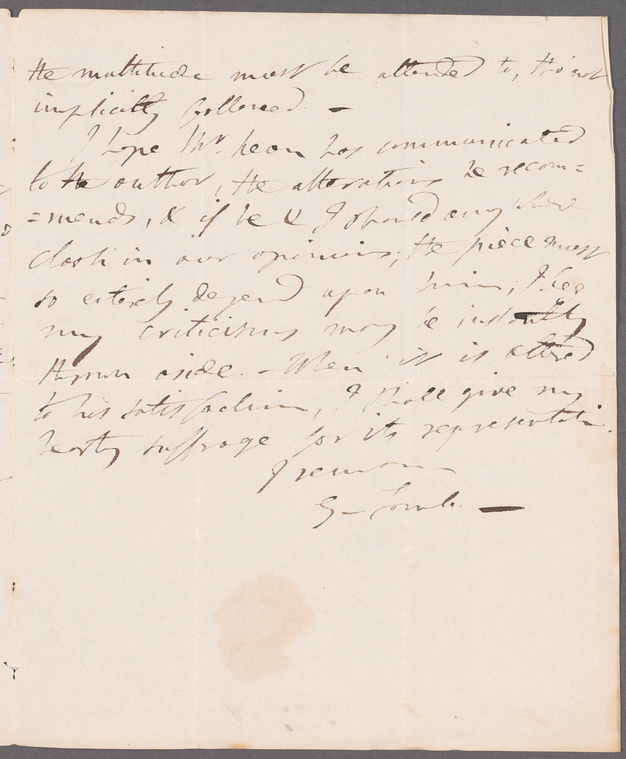 the multitude must be attended to, tho' not
implicitly followed. –
I hope Mr. Kean has communicated
to the author, the alterations he recom=
=mends, & if he & I should any where
clash in our opinions, the piece must
so entirely depend upon him, I beg
my criticisms may be instantly
thrown aside. – When it is altered
to his satisfaction, I shall give my
hearty suffrage for its representation.
I remain
G– Lamb. –